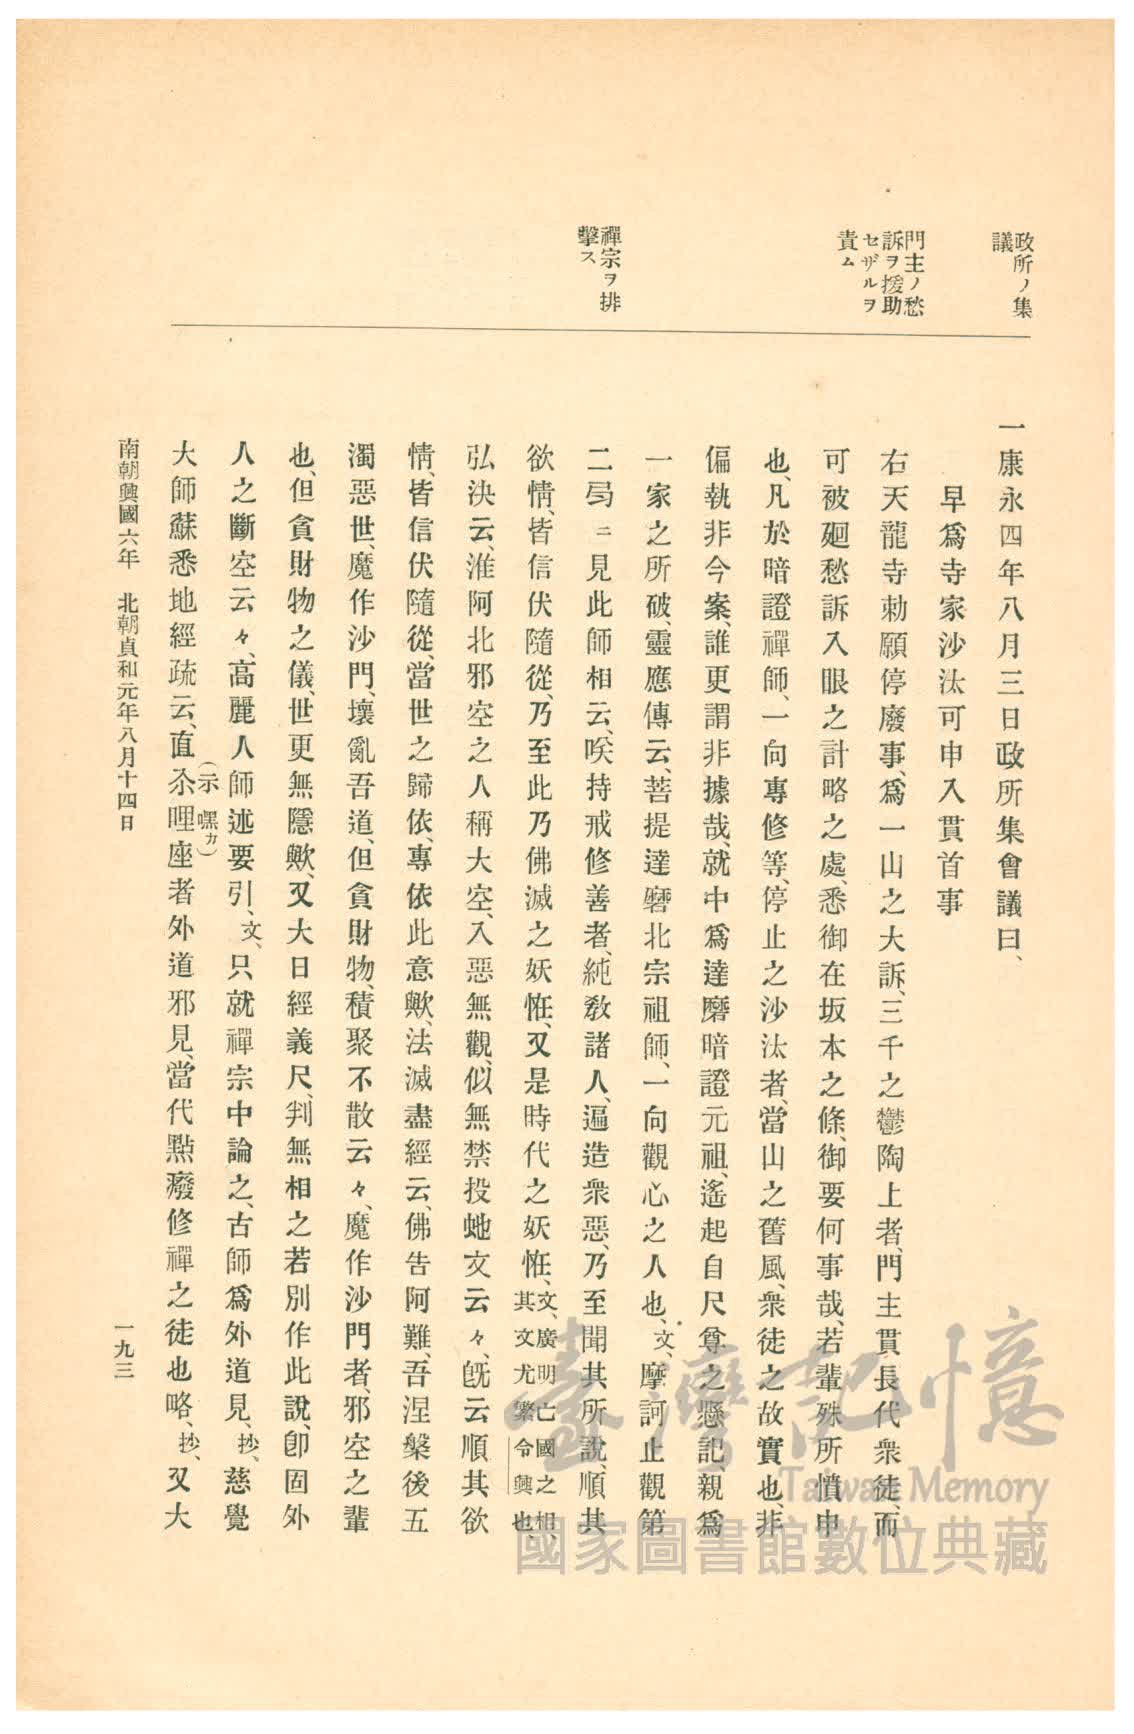 政所ノ集
議
門主ノ愁
訴ヲ援助
セザルヲ
責ム
禪宗ヲ排
擊ス
一康永四年八月三日政所集會議曰、
早爲寺家沙汰可申入貫首事
右天龍寺勅願停廢事、爲一山之大訴、三千之鬱陶上者、門主貫長代衆徒、而
可被廻愁訴入眼之計略之處、悉御在坂本之條、御要何事哉、若輩殊所憤申
也、凡於暗證禪師、一向專修等、停止之沙汰者、當山之舊風、衆徒之故實也、非
偏執非今案、誰更謂非據哉、就中爲達磨暗證元祖、遙起自尺尊之懸記、親爲
一家之所破、靈應傳云、菩提達磨北宗祖師、一向觀心之人也、文、摩訶止觀第
二局ニ見此師相云、唉持戒修善者、純敎諸人、遍造衆惡、乃至聞其所說、順其
欲情、皆信伏隨從、乃至此乃佛滅之妖恠、又是時代之妖恠、文、廣明亡國之相、其文尤繁令興也、
弘決云、淮阿北邪空之人稱大空、入惡無觀、似無禁投虵文云々、旣云順其欲
情、皆信伏隨從、當世之歸依、專依此意歟、法滅盡經云、佛告阿難、吾涅槃後五
濁惡世、魔作沙門、壞亂吾道、但貪財物、積聚不散云々、魔作沙門者、邪空之輩
也、但貪財物之儀、世更無隱歟、又大日經義尺、判無相之若別作此說、卽固外
人之斷空云々、高麗人師述要引、文、只就禪宗中論之、古師爲外道見、抄、慈覺
大師蘇悉地經疏云、直尒哩座者外道邪見、當代點癈修禪之徒也略、抄、又大
(示 嘿カ)
南朝興國六年 北朝貞和元年八月十四日
一九三
臺灣記憶
Taiwan Memory
國家圖書館數位典藏